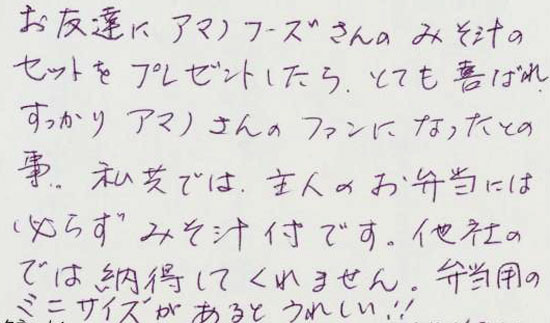 お友達に アマノフーズさんの みそ汁の
セットを プレゼントしたら、とても 喜ばれ、
すっかり アマノさんの ファンに なったとの
事。 私共では、主人の お弁当には
必らず みそ汁 付です。他社の
では 納得して くれません。弁当用の
ミニサイズが あると うれしい!!